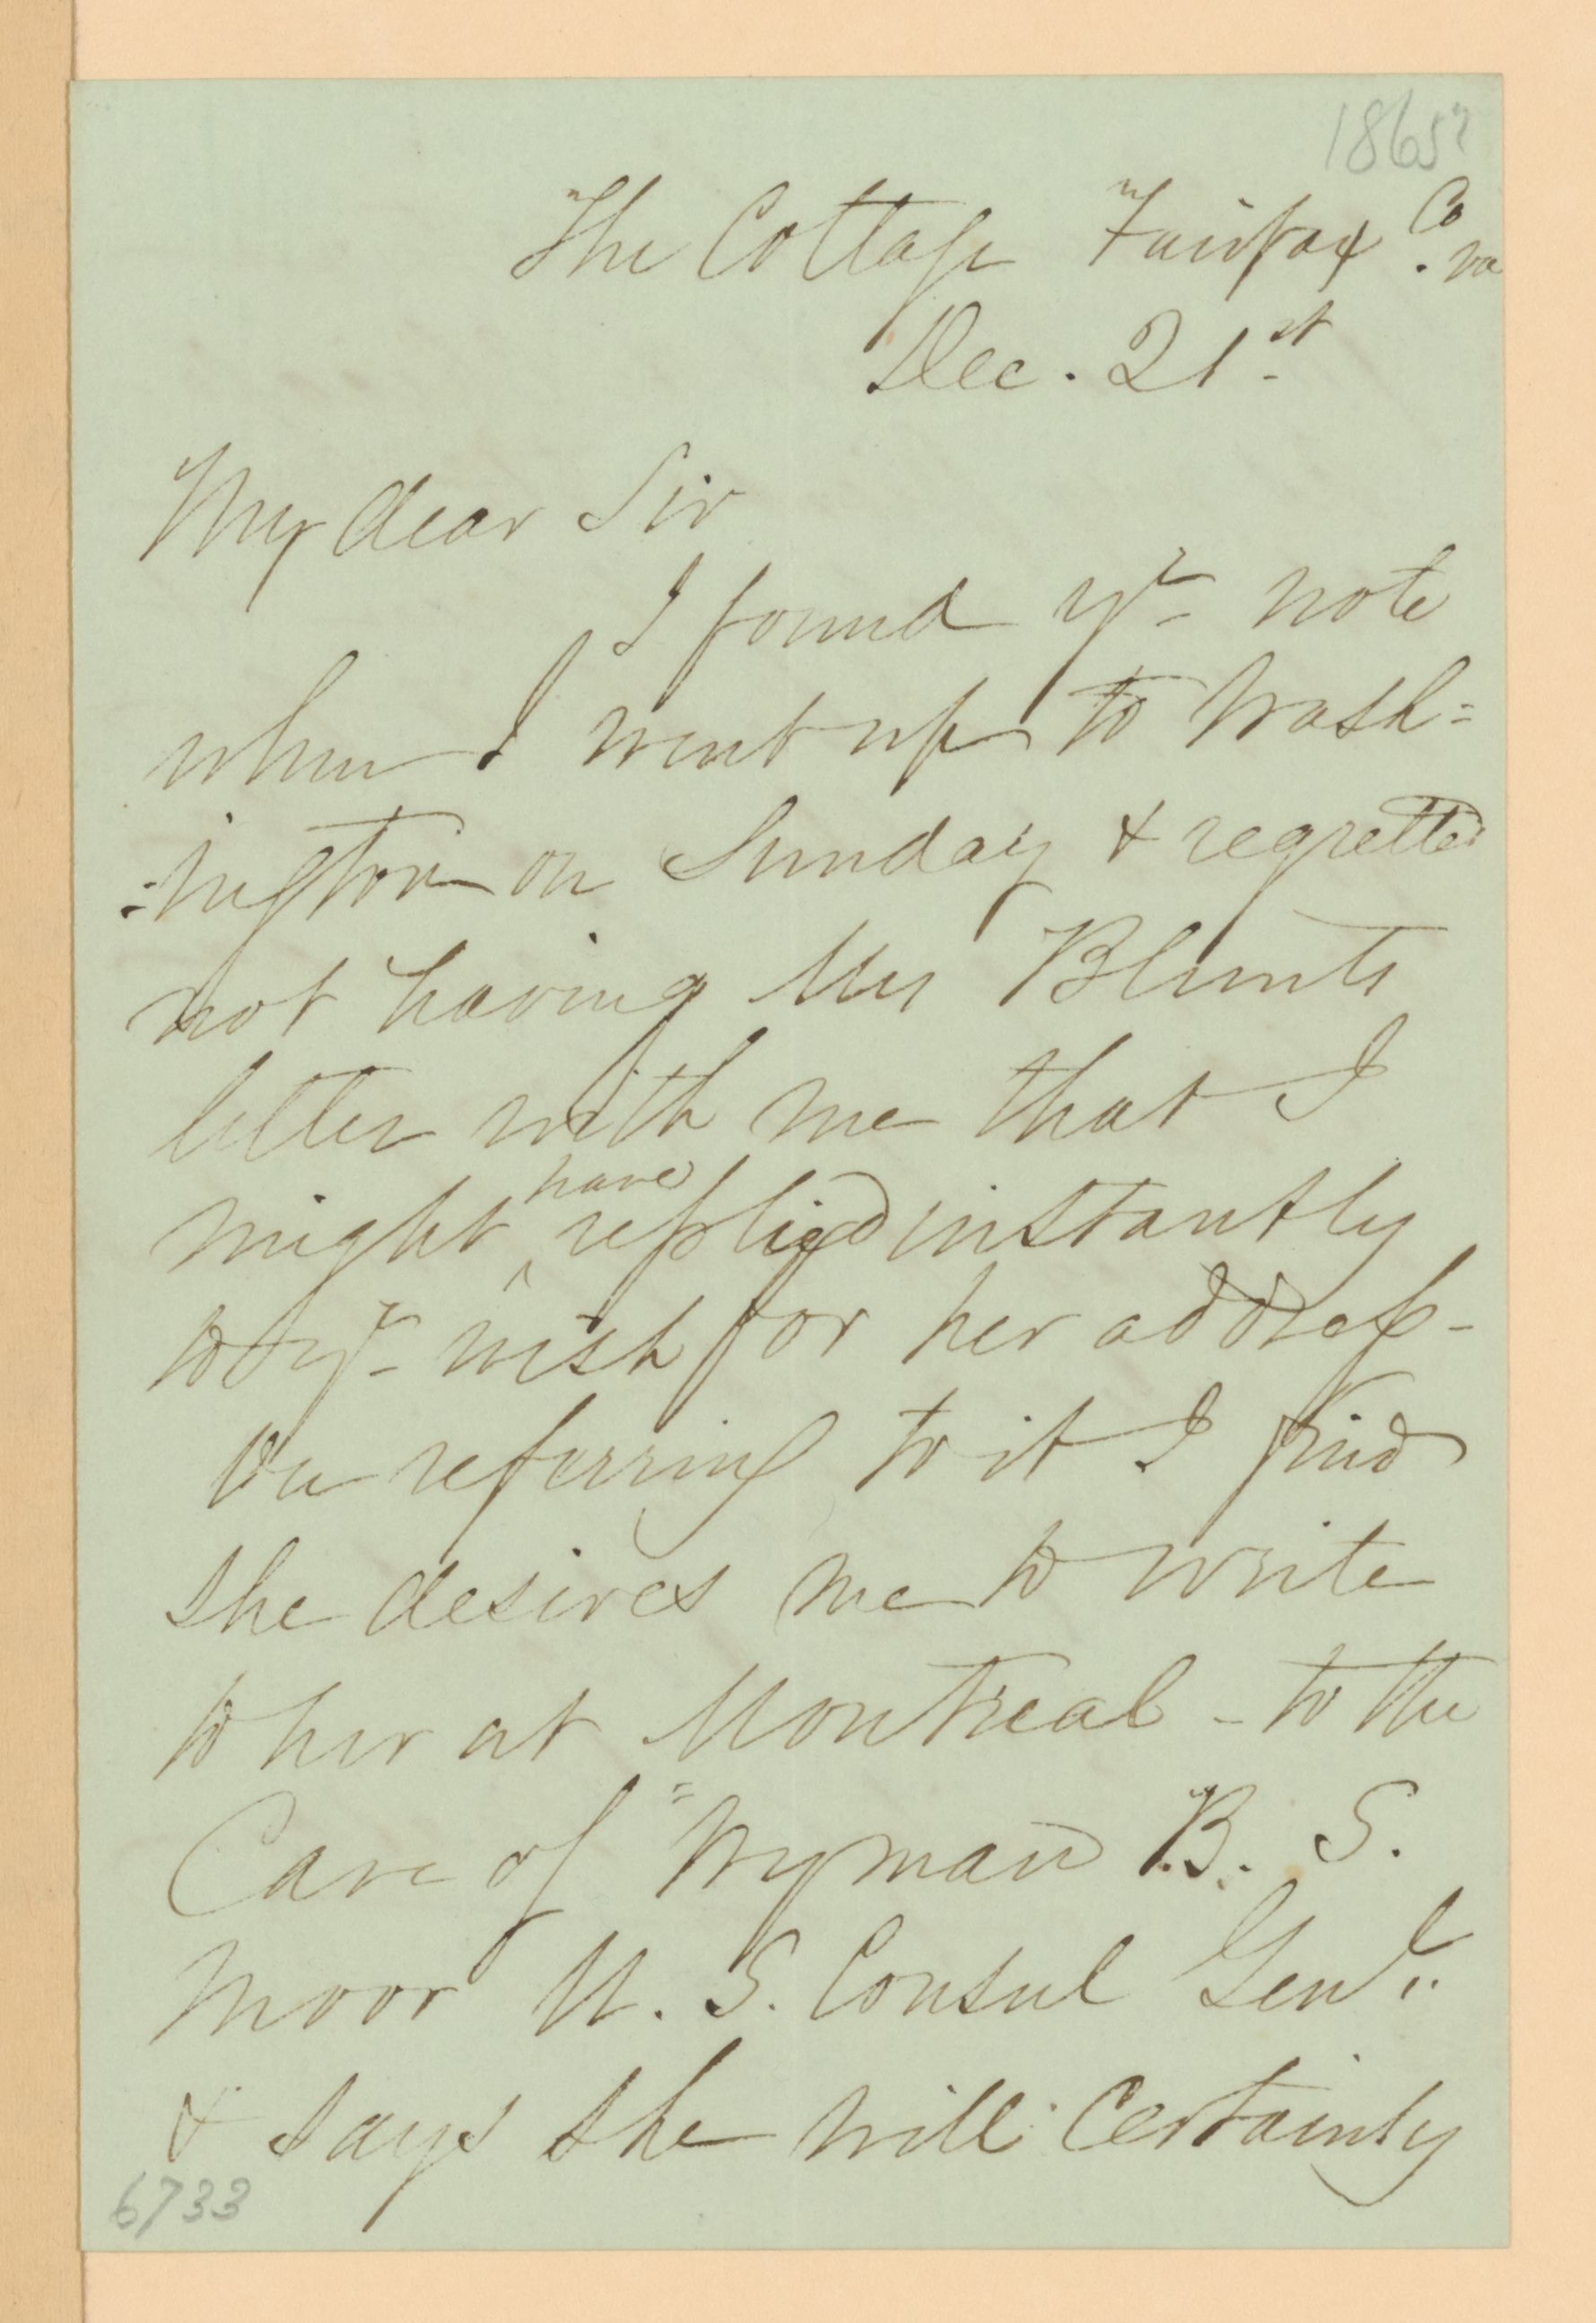 1865?
"The Cottage" Fairfax Co. Va
Dec. 21st
My dear Sir
I found yr. note
when I went up to Wash=
=ington on Sunday & regretted
not having Mrs Blunts
letter with me that I
might have replied instantly
to yr. wish for her address -
On referring to it I find
she desires me to write
to her at Montreal - to the
Care of "Wyman B. S.
Moor U. S. Consul Genl."
& says she will certainly
6733